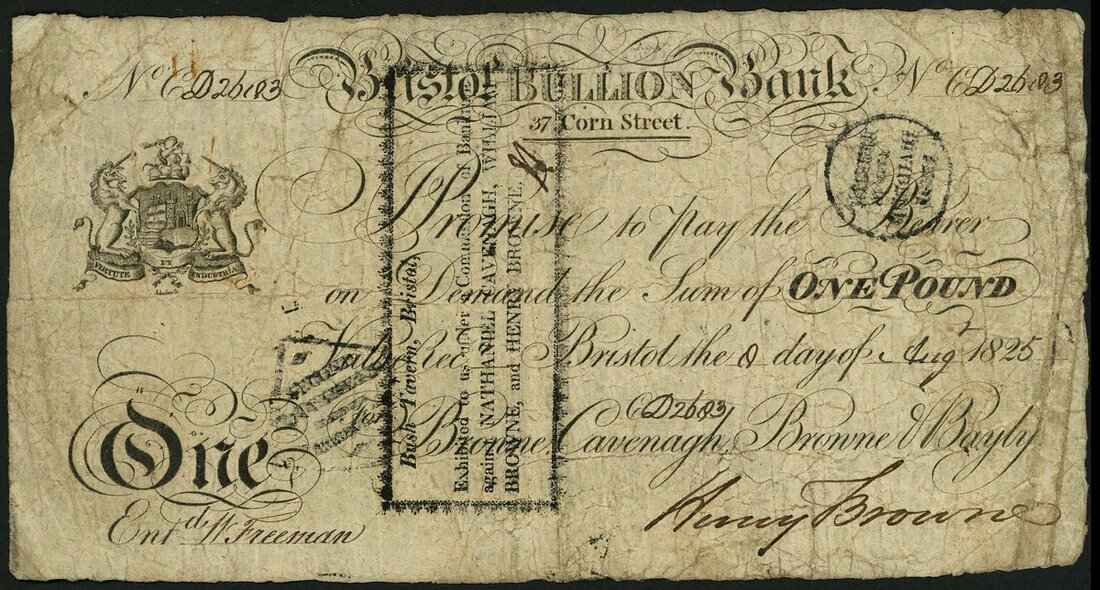 No CD2683 Bristol BULLION Bank No CD2683
37 Corn Street.
I Promise to pay the Bearer
on Demand the Sum of ONE POUND
Value Recd Bristol the 8 day of Augt 1825
for Browne, Cavenagh, Browne & Bayly
CD2683
One
Entd W Freeman
Henry Browne
VIRTUTE ET INDUSTRIA
Bush Tavern, Bristol,
Exhibited to us under Commission of Bankrupt
against NATHANIEL CAVENAGH, WILLIAM
BROWNE, and HENRY BROWNE.